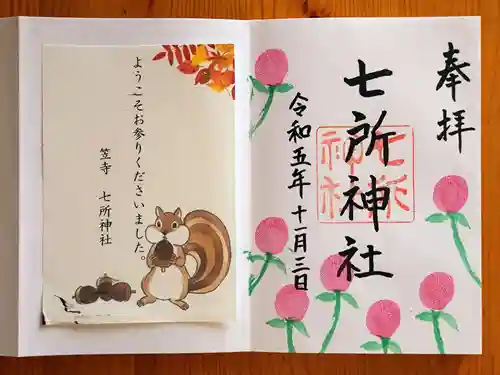 奉拝
七所神社
七所神社
令和五年十一月三日
ようこそお参りくださいました。
笠寺 七所神社